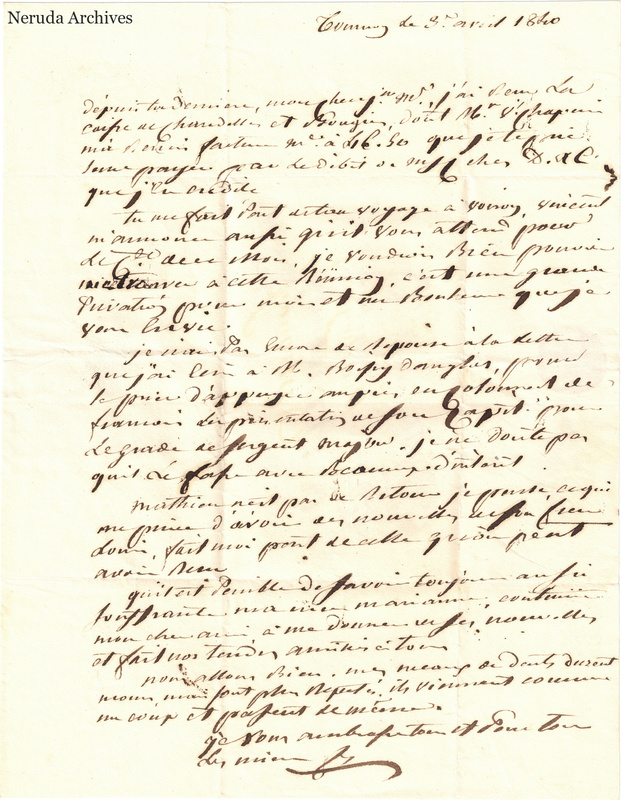 Neruda Archives
Tournon le 3 avril 1840
depuis ta dernière, mon cher j'ai Reçu La
caisse de Chandelles et Bougies, dont Mr Vt Chapuis
m'a Remis facture à 46.50 que
payer par le débit de D. & C.
que j'en crédite
tu me fait Part de ton voyage à voiron, vincent
m'annonce aussi qu'il vous attend pour
Le de ce Mois, je voudrois Bien pouvoir
me trouver à cette Réunion, c'est une grande
Privation pour moi et un Bonheur que je
vous Envie.
je n'ai Pas Encore de Reponse à la Lettre
que j'ai Ecrit à M. Boissy Danglas, pour
le prier d'appuyer auprès du colonel de
francois la présentation de son Capit. pour
Le grade de sergent major. je ne doute pas
qu'il Le fasse avec Beaucoup
Mathieu n'est pas de Retour je pense, ce qui
me prive d'avoir des nouvelles de
Louis, fait moi part de celle qu'on peut
avoir Reçu
qu'il est Penible de savoir toujours aussi
souffrante ma mariane, continue
mon cher ami, à me donner de ses nouvelles
et fait nos tendres amitiés à tous
nous allons Bien. mes meaux de Dents durent
moins, mais sont plus ils viennent comme
un coup et passent de même.
je vous embrasse tous et Pour tous
Les miens